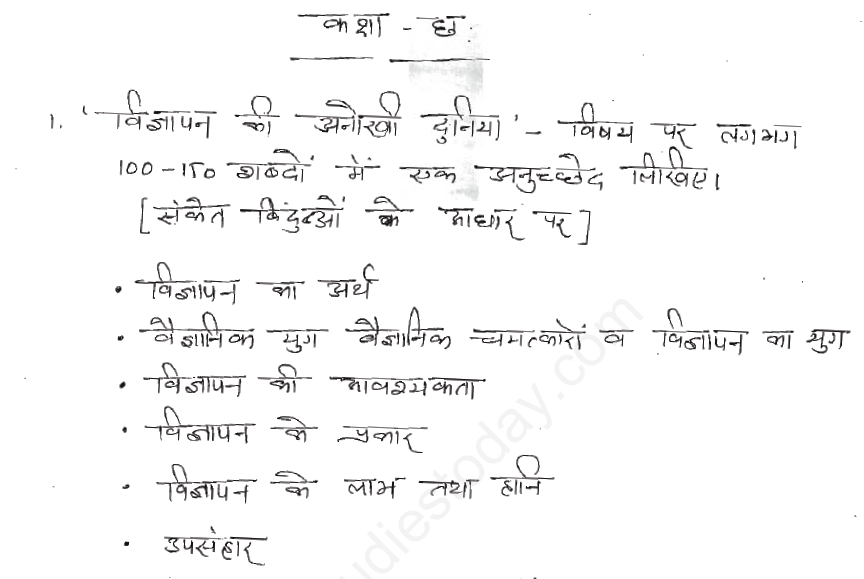 कक्षा - छः
1. 'विज्ञापन की अनोखी दुनिया' - विषय पर लगभग
100-150 शब्दों में एक अनुच्छेद लिखिए।
[संकेत बिंदुओं के आधार पर]
• विज्ञापन का अर्थ
• वैज्ञानिक युग वैज्ञानिक चमत्कारों व विज्ञापन का युग
• विज्ञापन की आवश्यकता
• विज्ञापन के प्रकार
• विज्ञापन के लाभ तथा हानि
• उपसंहार
udiestoday.com